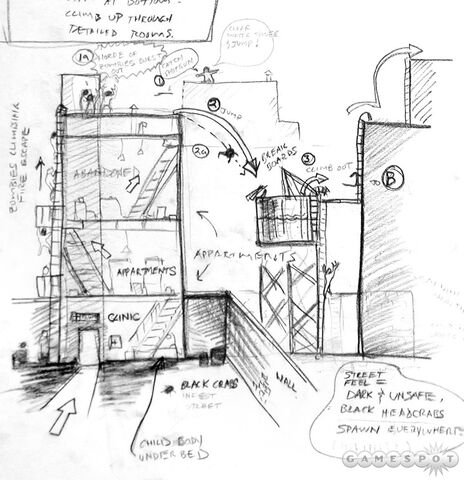 AT BOTTOM.
CLIMB UP THROUGH
DETAILED ROOMS.
1A
HORDE OF
ZOMBIES BURST
OUT
1
CATCH
SHOTGUN
OVER
JUMP!
2
JUMP
ZOMBIES CLIMBING
FIRE ESCAPE
2A
BREAK
BOARDS
3
CLIMB OUT
ABANDONED
B
APPARTMENTS
APPARTMENTS
CLINIC
WALL
BLACK CRABS
INFEST
STREET
CHILD BODY
UNDER BED
STREET
FEEL =
DARK & UNSAFE,
BLACK HEADCRABS
SPAWN EVERYWHERE
GAMESPOT